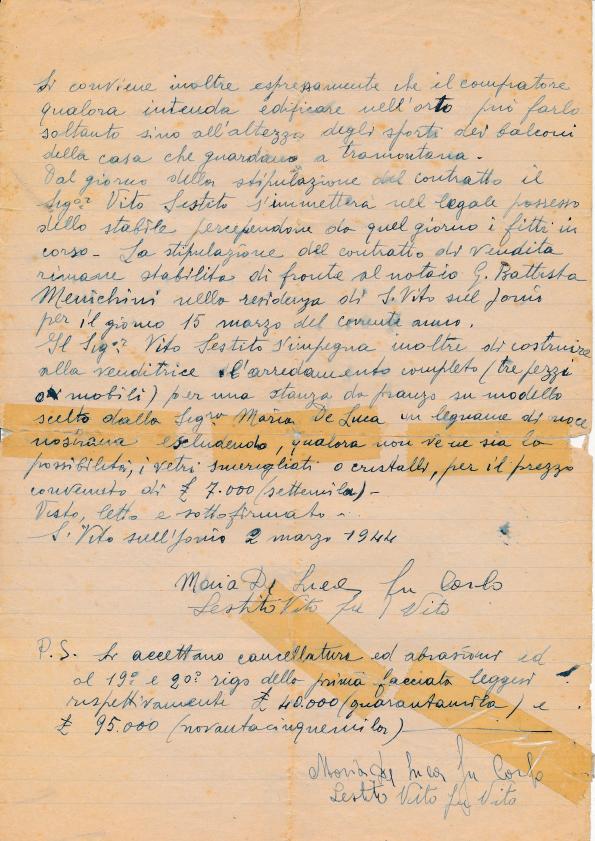 Si conviene inoltre espressamente che il compratore
qualora intenda edificare nell'orto può farlo
soltanto sino all'altezza degli sporti dei balconi
della casa che guardano a tramontana.
Dal giorno della stipulazione del contratto il
Sig.r Vito Sestito s'immetterà nel legale possesso
dello stabile percependone da quel giorno i fitti in
corso - La stipulazione del contratto di vendita
rimane stabilita di fronte al notaio G. Battista
Menichini nella residenza di S. Vito sul Jonio
per il giorno 15 marzo del corrente anno.
Il Sig.r Vito Sestito s'impegna inoltre di costruire
alla venditrice l'arredamento completo (tre pezzi
mobili) per una stanza da pranzo su modello
scelto dalla Sig.ra Maria De Luca in legname di noce
nostrana escludendo, qualora non ve ne sia la
possibilità, i vetri smerigliati o cristalli, per il prezzo
convenuto di £ 7.000 (settemila) -
Visto, letto e sottofirmato -
S. Vito sull'Jonio 2 marzo 1944
Maria De Luca fu Carlo
Sestito Vito fu Vito
P.S. Si accettano cancellatura ed abrasioni ed
al 19° e 20° rigo della prima facciata leggesi
rispettivamente £ 40.000 (quarantamila) e
£ 95.000 (novantacinquemila)
Maria De Luca fu Carlo
Sestito Vito fu Vito